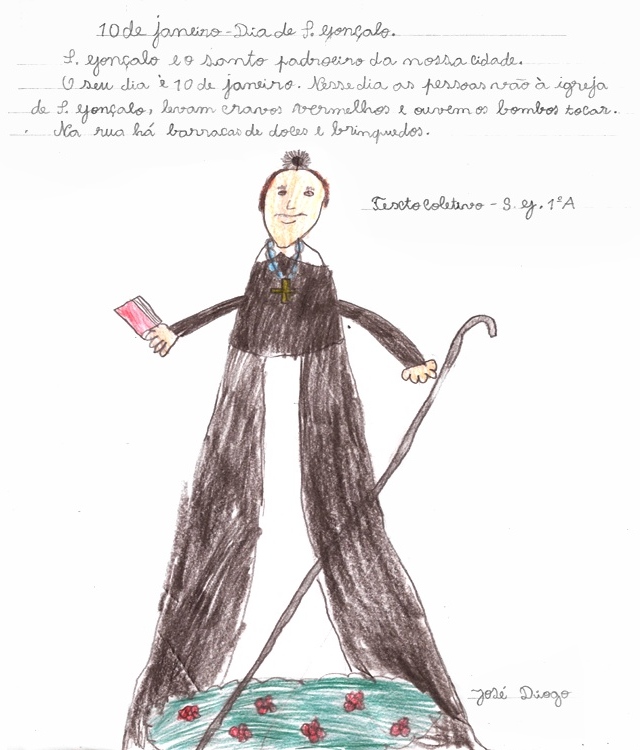 10 de janeiro - Dia de S. Gonçalo.
S. Gonçalo é o santo padroeiro da nossa cidade.
O seu dia é 10 de janeiro. Nesse dia as pessoas vão à igreja
de S. Gonçalo, levam cravos vermelhos e ouvem os bombos tocar.
Na rua há barracas de doces e brinquedos.
Texto coletivo - S. G. 1º A
José Diogo